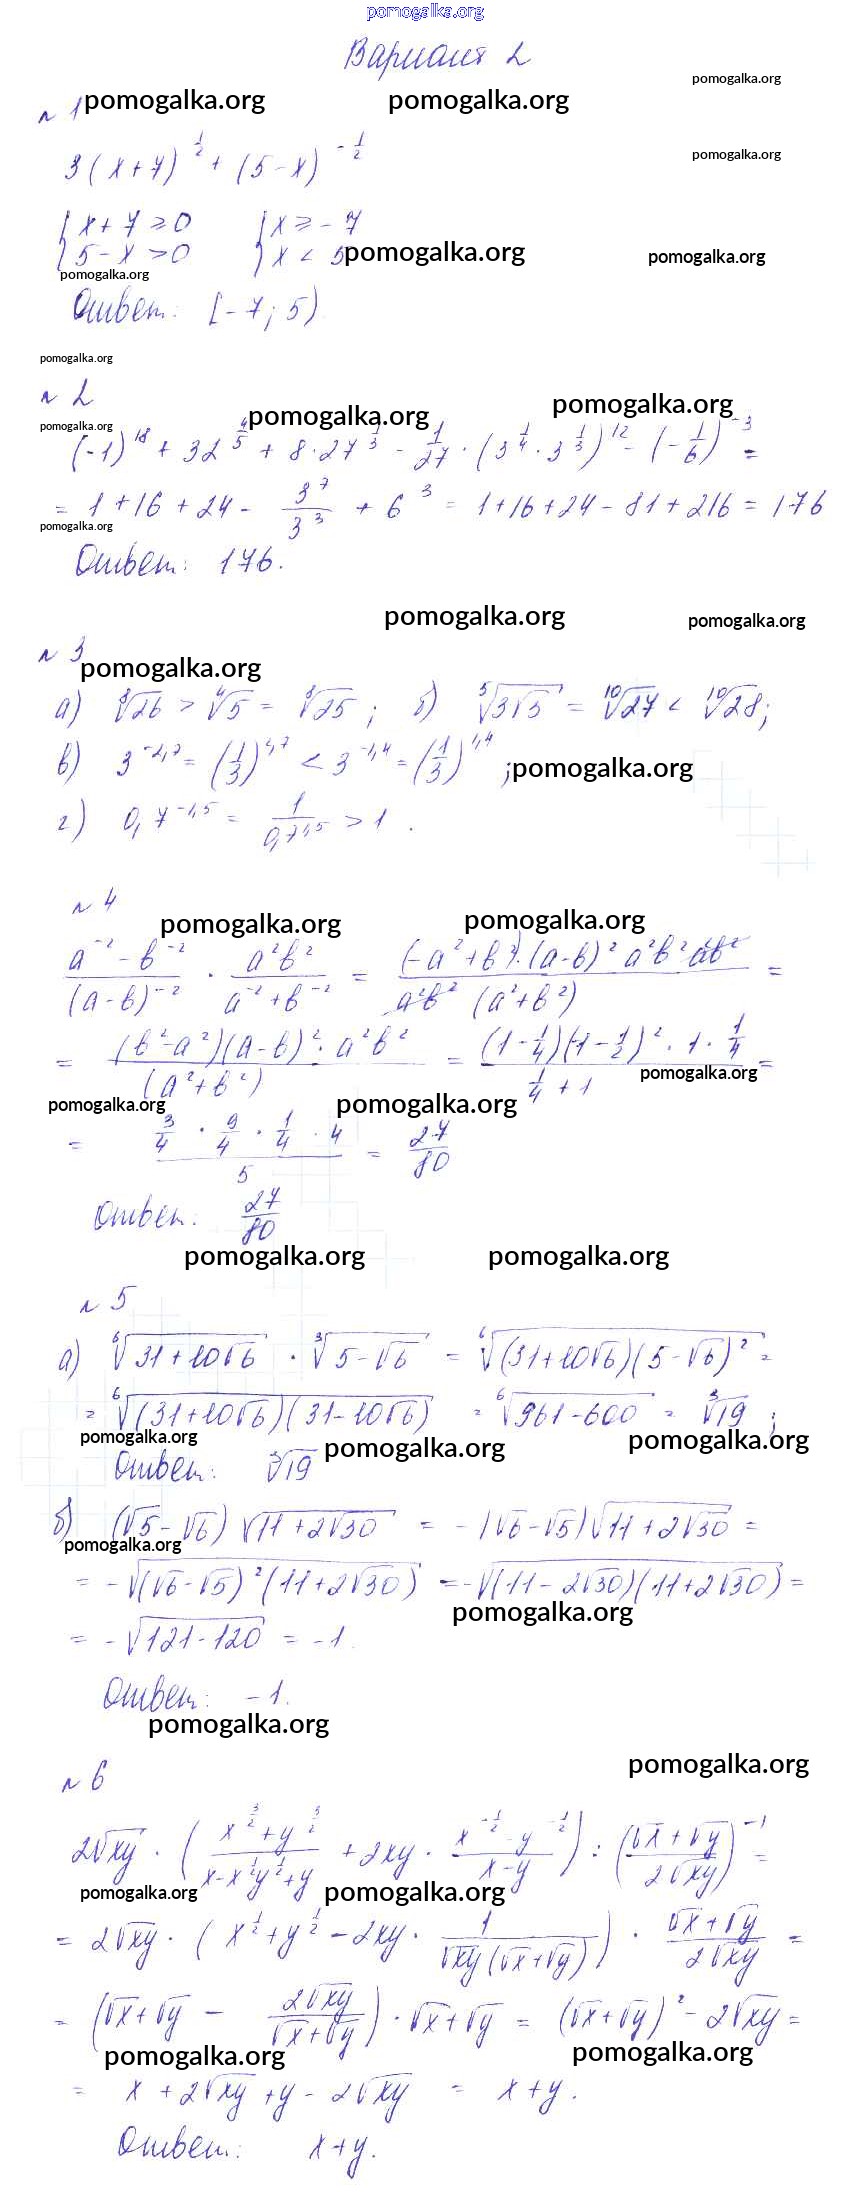 pomogalka.org
Вариант 2
pomogalka.org
№ 1 pomogalka.org pomogalka.org
3(x+7)^{1/2} + (5-x)^{-1/2}
pomogalka.org
{x+7 ≥ 0 {x ≥ -7
{5-x > 0 {x < 5 pomogalka.org pomogalka.org
pomogalka.org
Ответ: [-7; 5).
pomogalka.org
№ 2
pomogalka.org pomogalka.org pomogalka.org
(-1)^{18} + 32^{4/5} + 8·27^{1/3} - 1/27 · (3^{1/4} · 3^{1/3})^{12} - (-1/6)^{-3} =
= 1+16+24 - 3^7/3^3 + 6^3 = 1+16+24-81+216 = 176
pomogalka.org
Ответ: 176.
pomogalka.org pomogalka.org
№ 3
pomogalka.org
а) ⁸√26 > ⁴√5 = ⁸√25 ; б) ⁵√(3√3) = ¹⁰√27 < ¹⁰√28;
в) 3^{-1,7} = (1/3)^{1,7} < 3^{-1,4} = (1/3)^{1,4} ; pomogalka.org
г) 0,7^{-1,5} = 1/0,7^{1,5} > 1 .
№ 4
pomogalka.org pomogalka.org
(a^{-2} - b^{-2})/(a-b)^{-2} · a²b²/(a^{-2} + b^{-2}) = (-a²+b²)·(a-b)² a²b² a²b²/a²b² (a²+b²) =
= (b²-a²)(a-b)²· a²b²/(a²+b²) = (1-1/4)(-1-1/2)² · 1 · 1/4/1/4 + 1 =
pomogalka.org
pomogalka.org pomogalka.org
= 3/4 · 9/4 · 1/4 · 4/5 = 27/80
Ответ: 27/80
pomogalka.org pomogalka.org
№ 5
а) ⁶√(31+10√6) · ³√(5-√6) = ⁶√((31+10√6)(5-√6)²) =
= ⁶√((31+10√6)(31-10√6)) = ⁶√(961-600) = ³√19 ;
pomogalka.org pomogalka.org pomogalka.org
Ответ: ³√19
б) (√5-√6) √(11+2√30) = -(√6-√5)√(11+2√30) =
pomogalka.org
= -√((√6-√5)²(11+2√30)) = -√((11-2√30)(11+2√30)) =
pomogalka.org
= -√(121-120) = -1.
Ответ: -1.
pomogalka.org
pomogalka.org
№ 6
2√xy · ((x^{3/2}+y^{3/2})/(x-x^{1/2}y^{1/2}+y) + 2xy · (x^{-1/2}-y^{-1/2})/(x-y)) : ((√x+√y)/2√xy)^{-1} =
pomogalka.org pomogalka.org
= 2√xy · (x^{1/2}+y^{1/2} - 2xy · 1/√xy(√x+√y)) · (√x+√y)/2√xy =
= (√x+√y - 2√xy/(√x+√y)) · √x+√y = (√x+√y)² - 2√xy =
pomogalka.org pomogalka.org
= x + 2√xy + y - 2√xy = x+y.
Ответ: x+y.